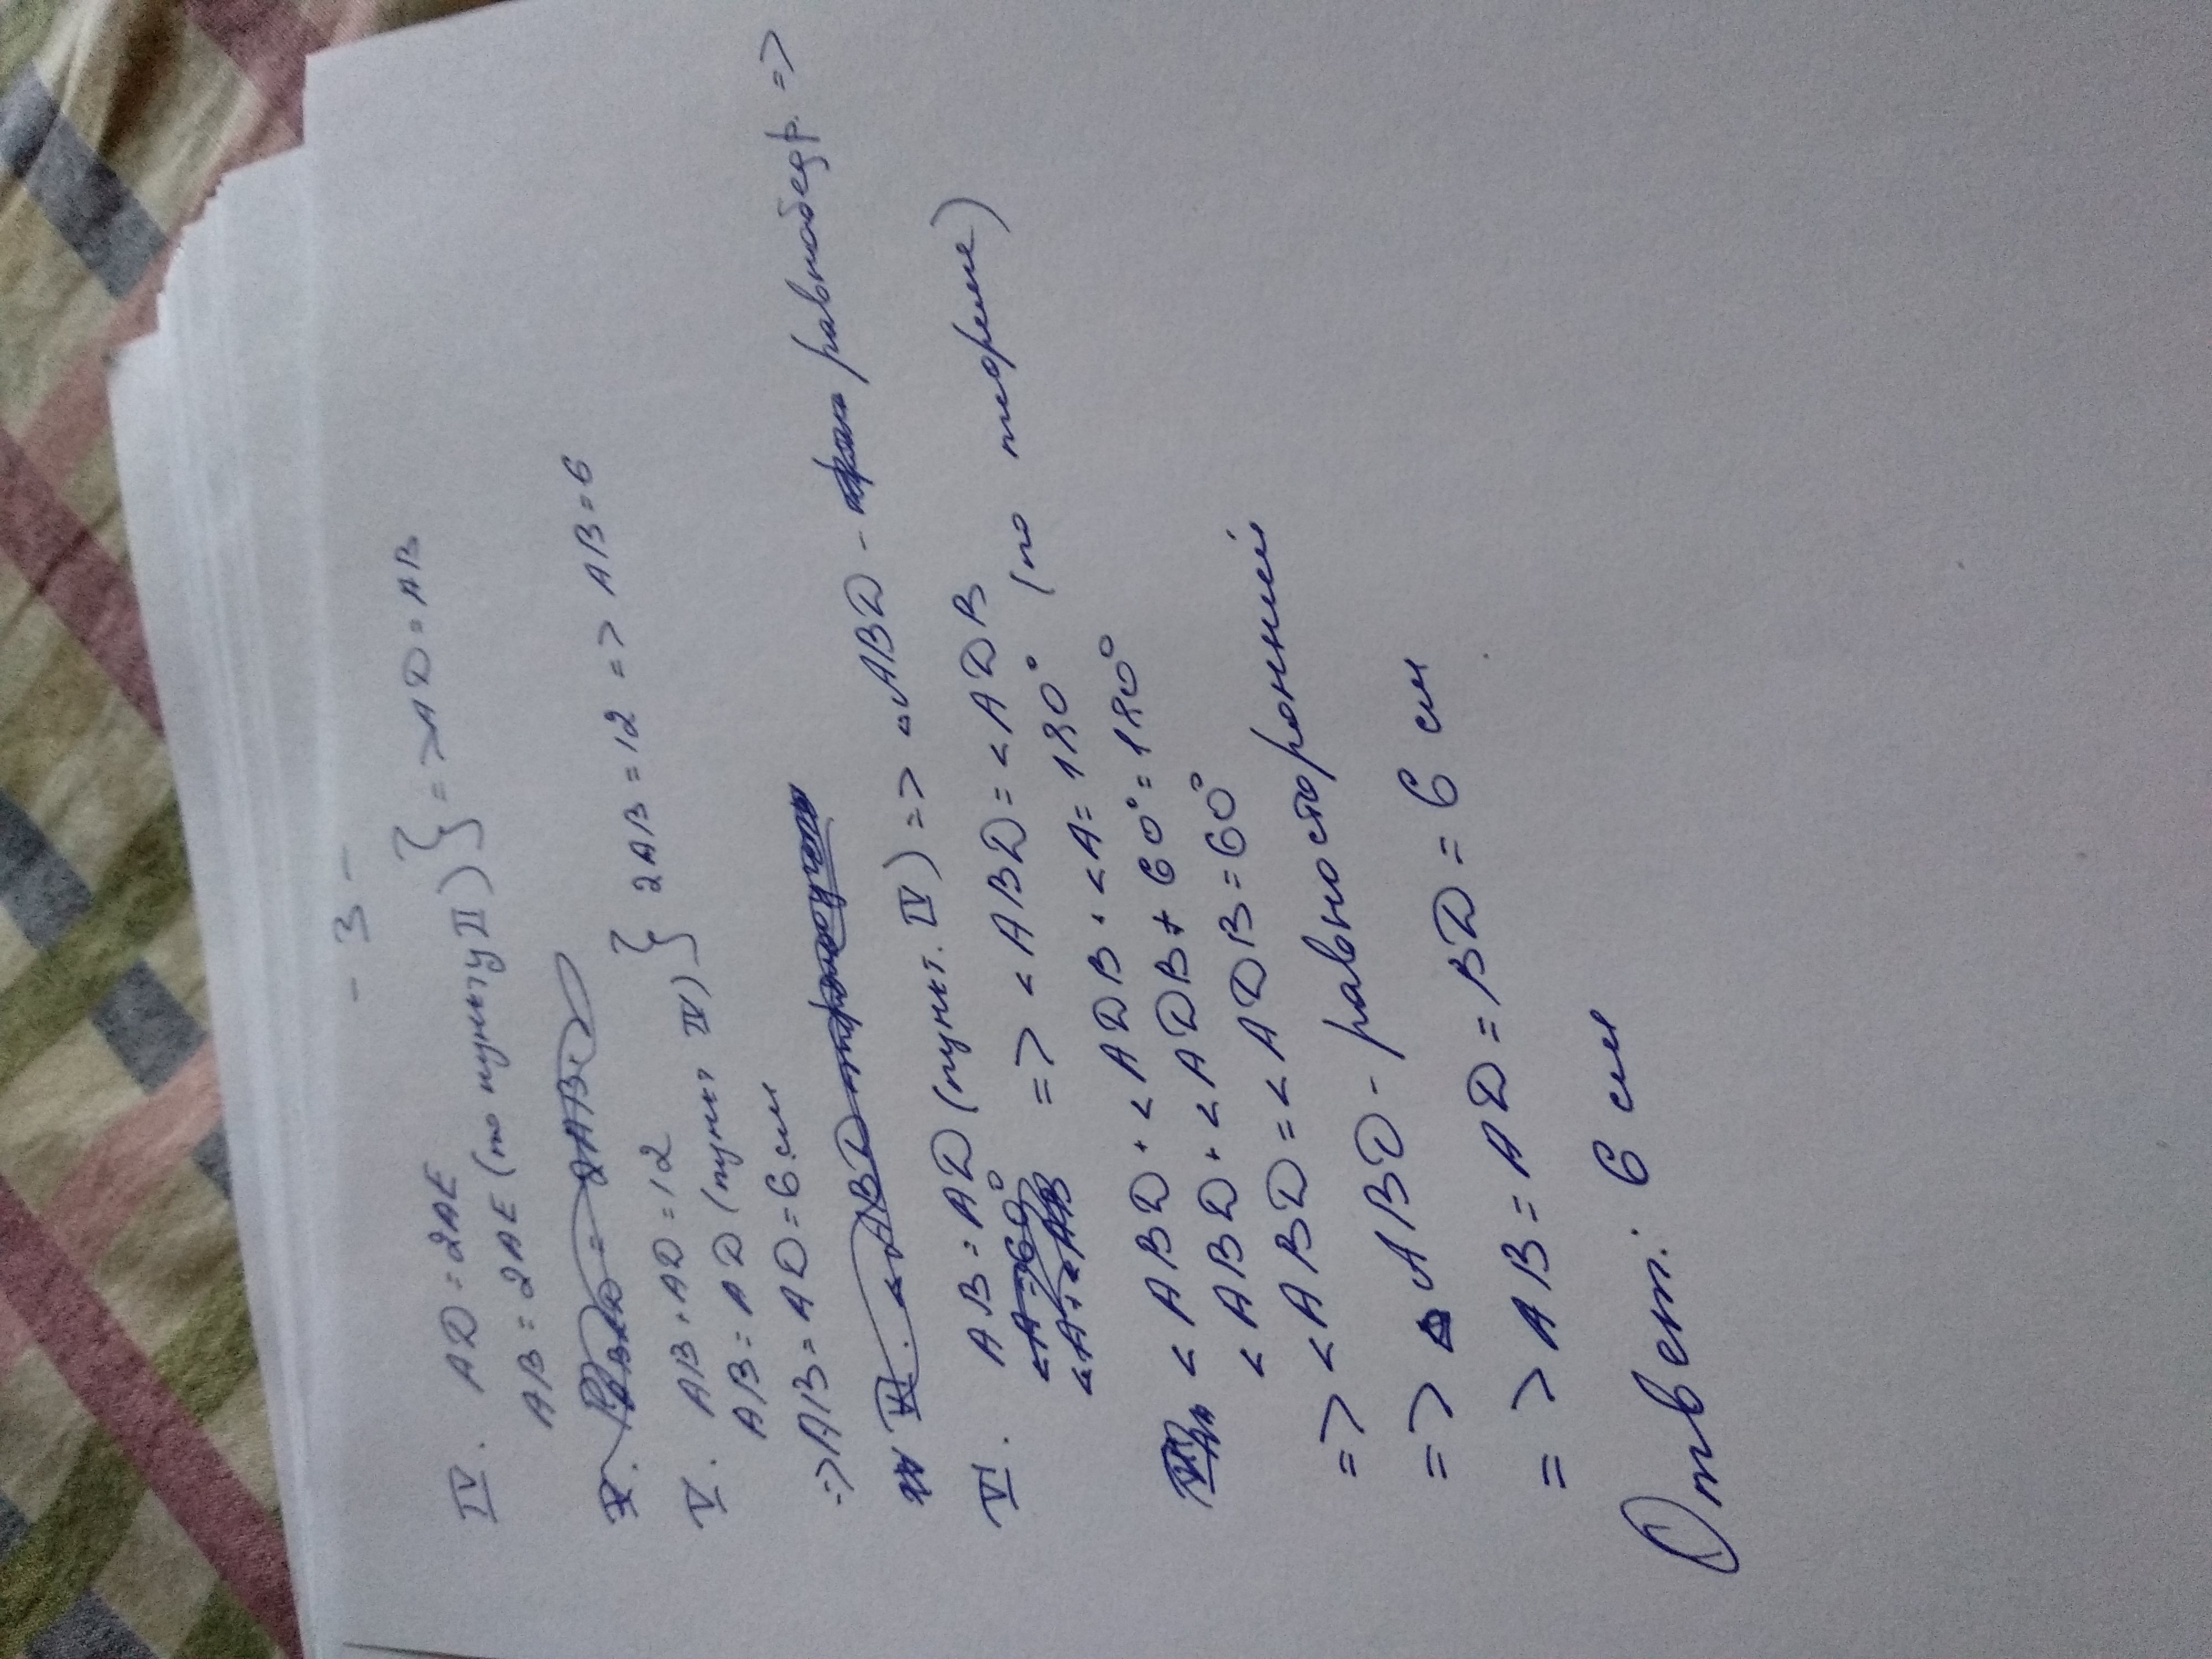 - 3 -
IV. AD = 2AE
AB = 2AE (по пункту II) } => AD = AB
V. AB + AD = 12
AB = AD (пункт IV) } 2AB = 12 => AB = 6
=> AB = AD = 6 см
VI. AB = AD (пункт. IV) => ▵ABD - равнобедр. =>
=> <ABD = <ADB
<ABD + <ADB + <A = 180° (по теореме)
<ABD + <ADB + 60° = 180°
=> <ABD = <ADB = 60°
=> ▵ABD - равносторонний
=> AB = AD = BD = 6 см
Ответ: 6 см